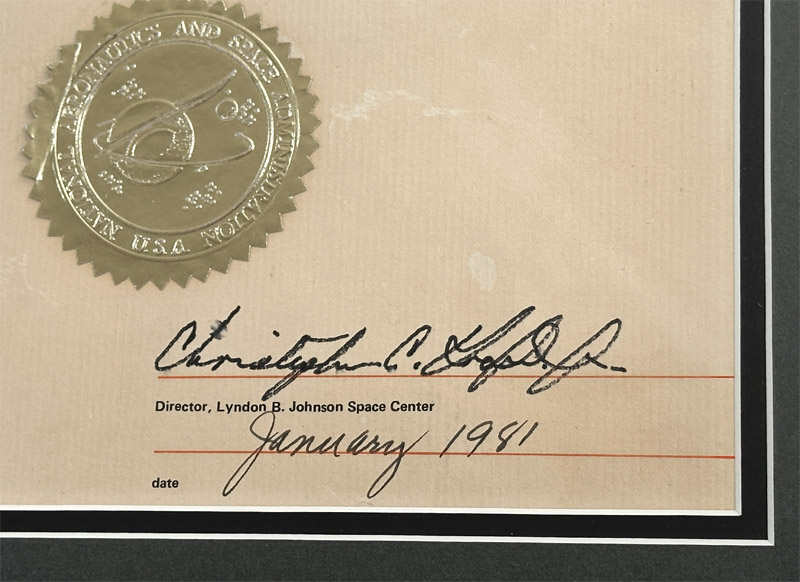 NATIONAL AERONAUTICS AND SPACE ADMINISTRATION
U.S.A.
Christopher C. Kraft, Jr.
Director, Lyndon B. Johnson Space Center
January 1981
date